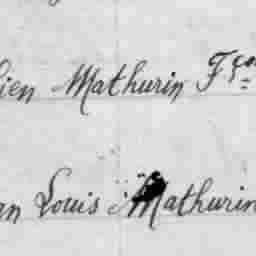 ien Mathurin Fço
an Louis Mathurin